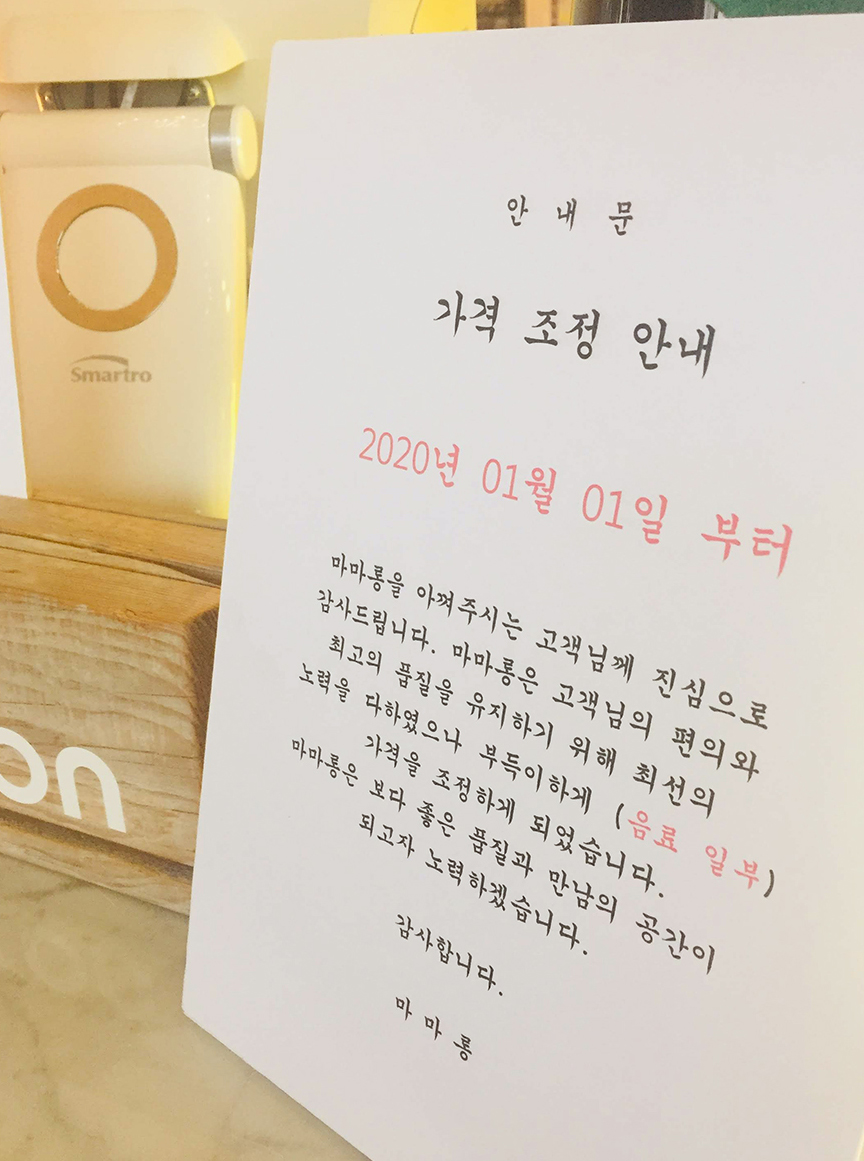 Smartro
on
안 내 문
가격 조정 안내
2020년 01월 01일 부터
마마롱을 아껴주시는 고객님께 진심으로
감사드립니다. 마마롱은 고객님의 편의와
최고의 품질을 유지하기 위해 최선의
노력을 다하였으나 부득이하게 (음료 일부)
가격을 조정하게 되었습니다.
마마롱은 보다 좋은 품질과 만남의 공간이
되고자 노력하겠습니다.
감사합니다.
마 마 롱